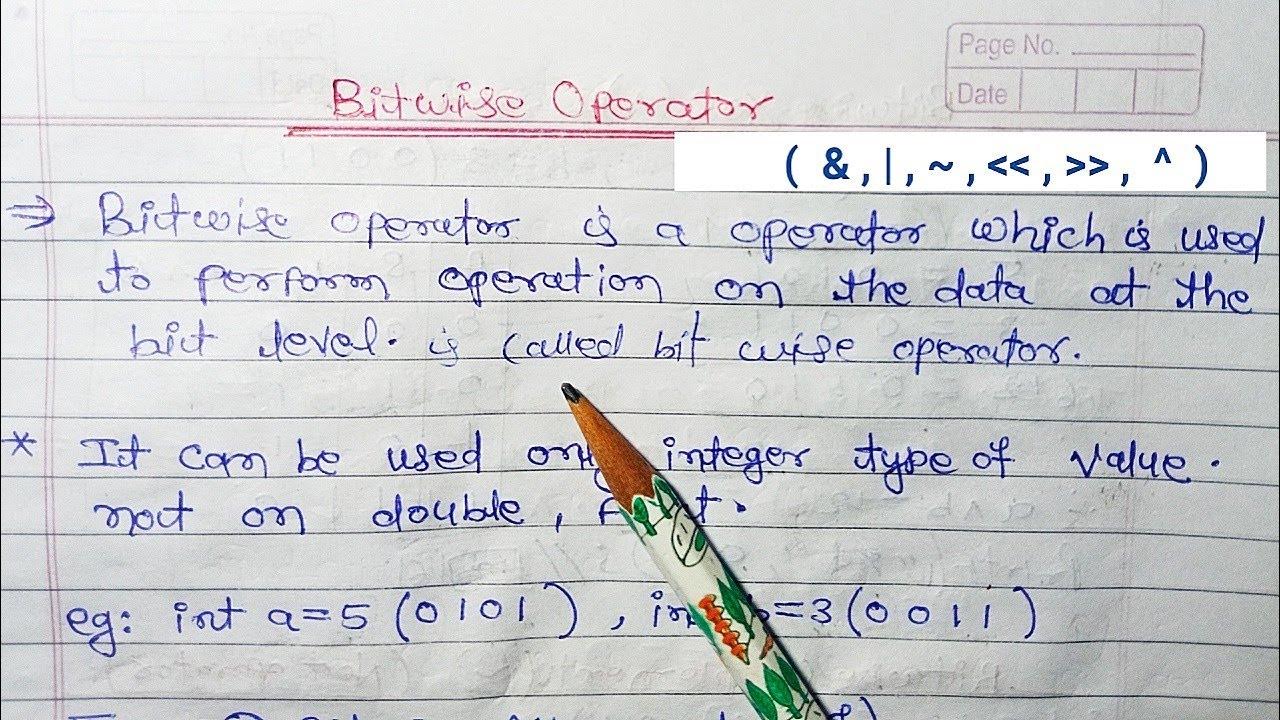 Page No.
Date
Bitwise Operator
( & , | , ~ , << , >> , ^ )
⇒ Bitwise operator is a operator which is used
to perform operation on the data at the
bit level. is called bit wise operator.
* It can be used only integer type of value.
not on double ,
eg: int a=5 (0101) , b=3 (0011)